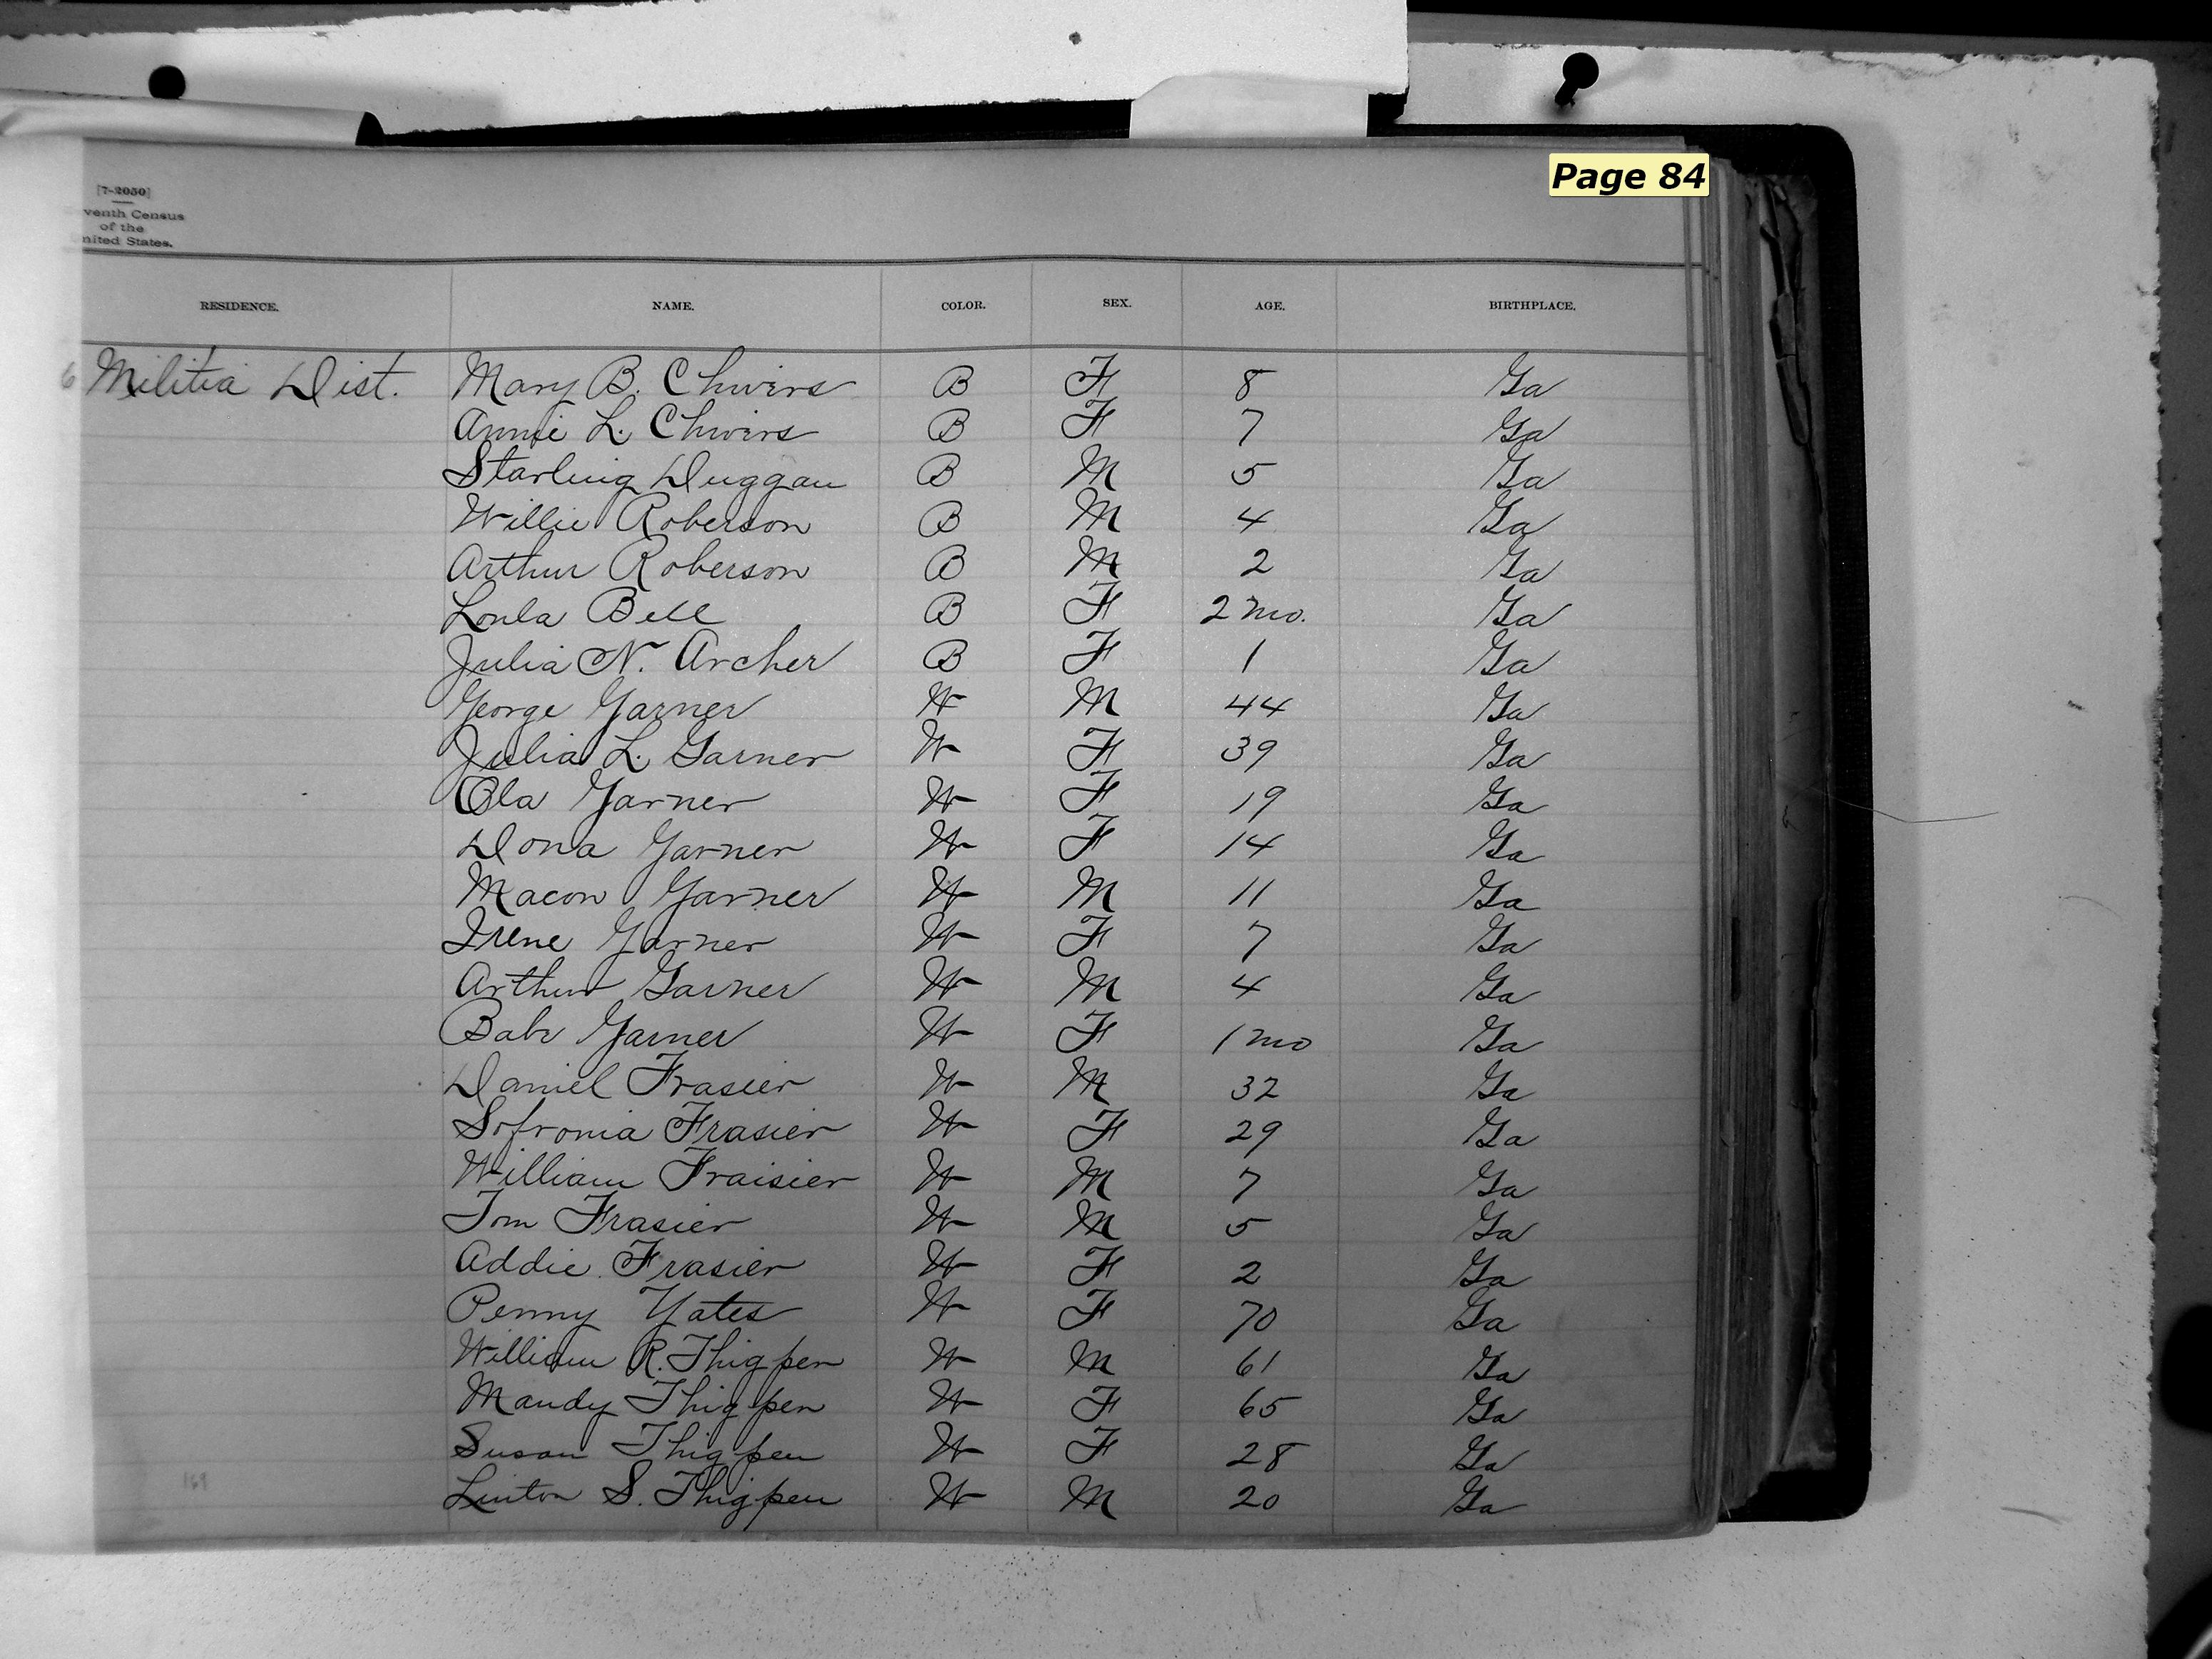 Page 84
[7-2050]
venth Census
of the
nited States.
RESIDENCE. NAME. COLOR. SEX. AGE. BIRTHPLACE.
6 Militia Dist. Mary B. Chivirs B F 8 Ga
Annie L. Chivirs B F 7 Ga
Starling Duggan B M 5 Ga
Willie Roberson B M 4 Ga
Arthur Roberson B M 2 Ga
Loula Bell B F 2 mo. Ga
Julia N. Archer B F 1 Ga
George Garner W M 44 Ga
Julia L. Garner W F 39 Ga
Ola Garner W F 19 Ga
Dona Garner W F 14 Ga
Macon Garner W M 11 Ga
Irene Garner W F 7 Ga
Arthur Garner W M 4 Ga
Babe Garner W F 1 mo Ga
Daniel Frasier W M 32 Ga
Sofronia Frasier W F 29 Ga
William Fraisier W M 7 Ga
Tom Frasier W M 5 Ga
Addie Frasier W F 2 Ga
Penny Yates W F 70 Ga
William R. Thigpen W M 61 Ga
Mandy Thigpen W F 65 Ga
Susan Thigpen W F 28 Ga
Linton S. Thigpen W M 20 Ga
169